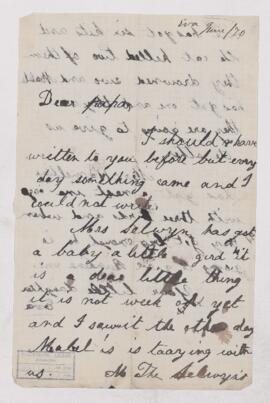 June/70
Dear papa
I should have
written to you before but every
day something came and I
could not write
Mrs Selwyn has got
a baby a little gird it
is a dear little thing
it is not week old yet
and I saw it the other day
Mabel is is taaying with
us. The Selwyns